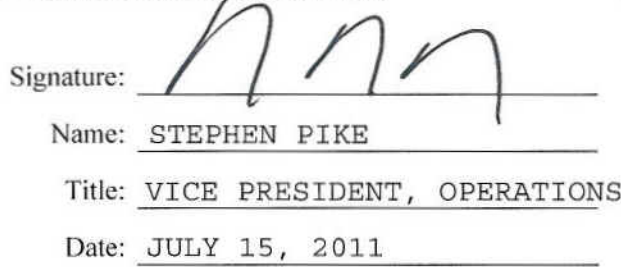 Signature:
Name: STEPHEN PIKE
Title: VICE PRESIDENT, OPERATIONS
Date: JULY 15, 2011